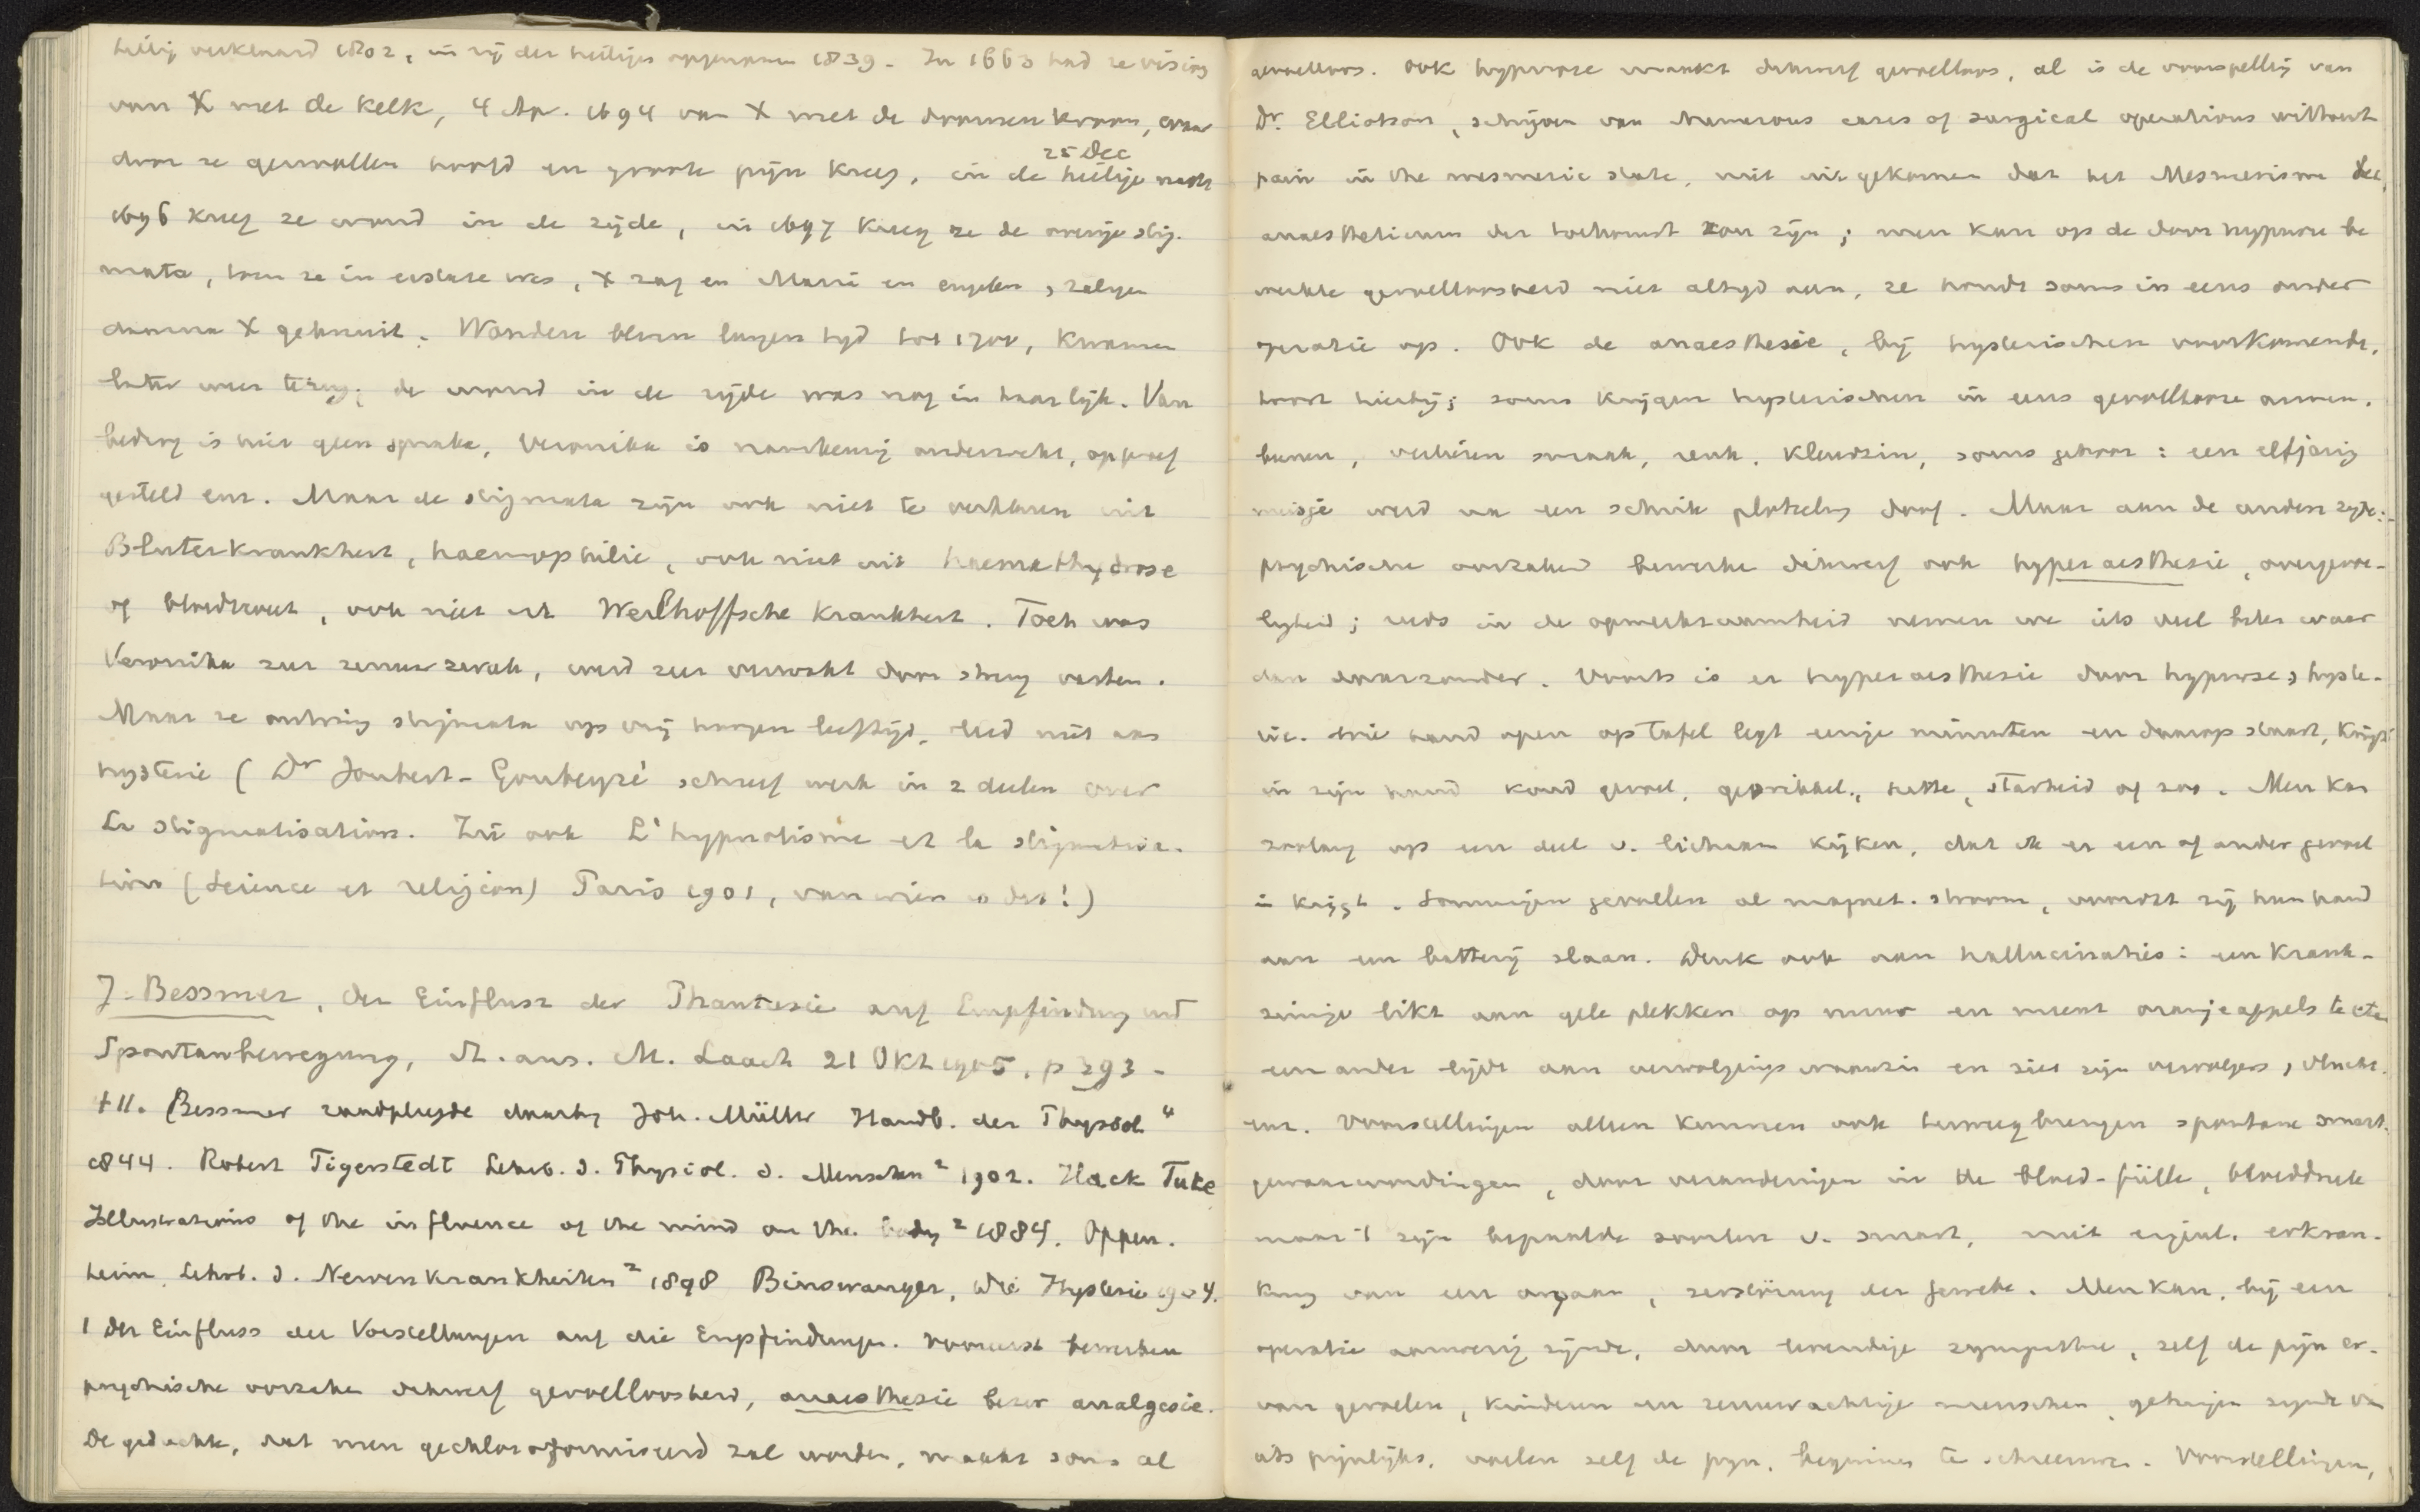 heilig verklaard 1802, in rij der heiligen opgenomen 1839. In 1663 had ze visioen
van X met de kelk, 4 Ap. 1694 van X met de doornenkroon, waar
door ze gezwollen hoofd en groote pijn kreeg, in de heilige nacht
25 Dec
1696 kreeg ze wond in de zijde, in 1697 kreeg ze de overige stig-
mata, toen ze in extase was, X zag en Maria en engelen, zalige
daarna X gekruist. Wonden bleven langen tijd tot 1700, kwamen
later weer terug; de wond in de zijde was nog in haar lijk. Van
bedrog is hier geen sprake, Veronika is nauwkeurig onderzocht, op proef
gesteld enz. Maar de stigmata zijn ook niet te verklaren uit
Bluterkrankheit, haemophilie, ook niet uit haemathydrose
of bloedzweet, ook niet uit Werlhoffsche Krankheit. Toch was
Veronika zeer zenuwzwak, werd zeer verzwakt door streng vasten.
Maar ze ontving stigmata op vrij hoogen leeftijd, leed niet aan
hysterie (Dr Joubert-Gourbeyré schreef werk in 2 deelen over
La stigmatisation. Zie ook L'hypnotisme et la stigmatisa-
tion (Science et religion) Paris 1901, van wien is dat!)
J. Bessmer, Der Einfluss der Phantasie auf Empfindung und
Spontanbewegung, St. aus. M. Laach 21 Okt 1905, p 293-
411. Bessmer raadpleegde daarbij Joh. Müller Handb. der Physiol.4
1844. Robert Tigerstedt Lehrb. d. Physiol. d. Menschen 2 1902. Hack Tuke
Illustrations of the influence of the mind on the body 2 1884. Oppen-
heim, Lehrb. d. Nervenkrankheiten 2 1898 Binswanger, Die Hysterie 1904.
1 Der Einfluss der Vorstellungen auf die Empfindungen. Vooreerst bewerken
psychische oorzaken dikwerf gevoelloosheid, anaesthesie beter analgesie.
De gedachte, dat men gechloroformiseerd zal worden, maakt soms al
gevoelloos. Ook hypnose maakt dikwerf gevoelloos, al is de voorspelling van
Dr. Elliotson, schrijver van Numerous cases of surgical operations without
pain in the mesmeric state, niet uitgekomen dat het Mesmerisme het
anaestheticum der toekomst zou zijn; men kan op de door hypnose be
werkte gevoelloosheid niet altijd aan, ze houdt soms in eens onder
operatie op. Ook de anaesthesie, bij hysterischen voorkomende,
hoort hierbij; soms krijgen hysterischen in eens gevoellooze armen,
beenen, verliezen smaak, reuk, kleurzin, soms gehoor: een elfjarig
meisje werd van een schrik plotseling doof. Maar aan de andere zijde:
psychische oorzaken bewerken dikwerf ook hyperaesthesie, overgevoe-
ligheid; reeds in de opmerkzaamheid nemen we iets veel beter waar
dan daarzonder. Voorts is er hyperaesthesie door hypnose, hyste-
rie. Wie hand open op tafel legt eenige minuten en daarop staart, krijgt
in zijn hand koud gevoel, geprikkel, hitte, starheid of zoo. Men kan
zoolang op een deel v. lichaam kijken, dat men er een of ander gevoel
in krijgt. Sommigen gevoelen al magnet. stroom, voordat zij hun hand
aan een batterij slaan. Denk ook aan hallucinaties: een krank-
zinnige likt aan gele plekken op muur en meent oranjeappels te eten
een ander lijdt aan vervolgingswaanzin en ziet zijn vervolgers, vlucht
enz. Voorstellingen alleen kunnen ook teweegbrengen spontane smart-
gewaarwordingen, door veranderingen in de bloed-fülle, bloeddruk
maar 't zijn bepaalde soorten v. smart, niet eigenl. erkran-
kung van een orgaan, zerstörung der gewebe. Men kan, bij een
operatie aanwezig zijnde, door levendige sympathie, zelf de pijn er-
van gevoelen, kinderen en zenuwachtige menschen, getuigen zijnde van
iets pijnlijks, voelen zelf de pijn, beginnen te schreeuwen. Voorstellingen,